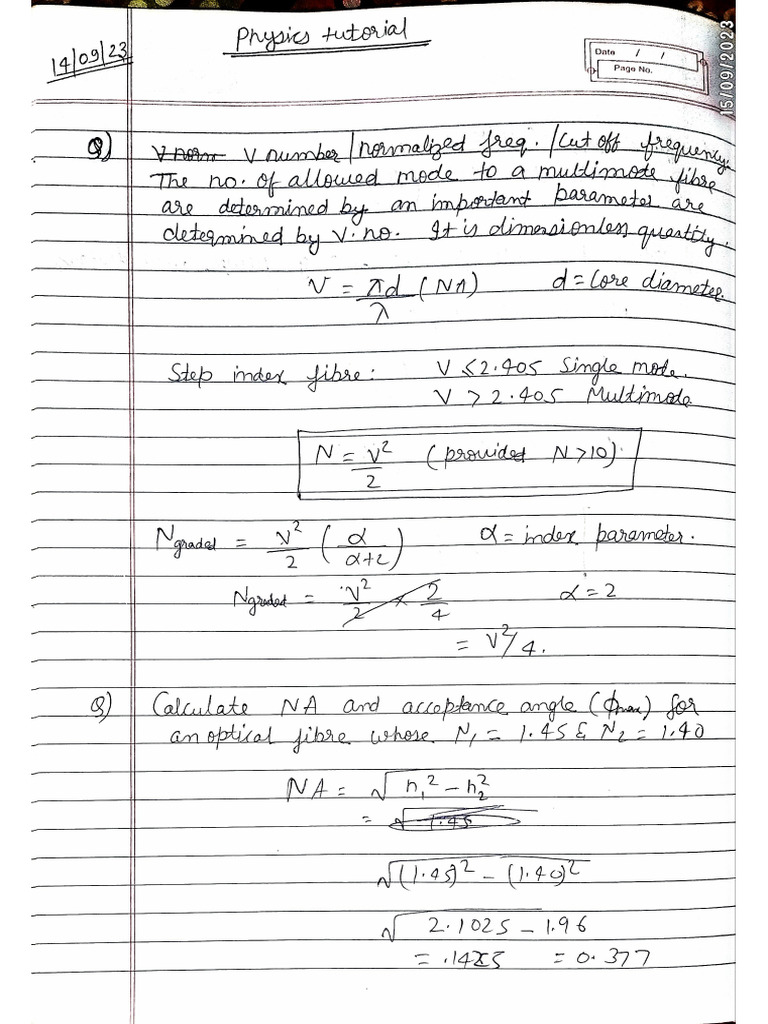 Physics tutorial
14/09/23
Date / /
Page No.
15/09/2023
Q) V norm V number/normalized freq. /Cut off frequency.
The no. of allowed mode to a multimode fibre
are determined by an important parameter are
determined by V. no. It is dimensionless quantity.
V = πd/λ (NA) d = Core diameter.
Step index fibre: V ≤ 2.405 Single mode.
V > 2.405 Multimode
N = V²/2 (provided N>10)
Ngraded = V²/2 (α/α+2) α = index parameter.
Ngraded = V²/2 × 2/4 α = 2
= V²/4.
Q) Calculate NA and acceptance angle (ϕmax) for
an optical fibre whose N₁ = 1.45 & N₂ = 1.40
NA = √n₁² – n₂²
= √1.45
√(1.45)² – (1.40)²
√2.1025 – 1.96
= .1425 = 0.377